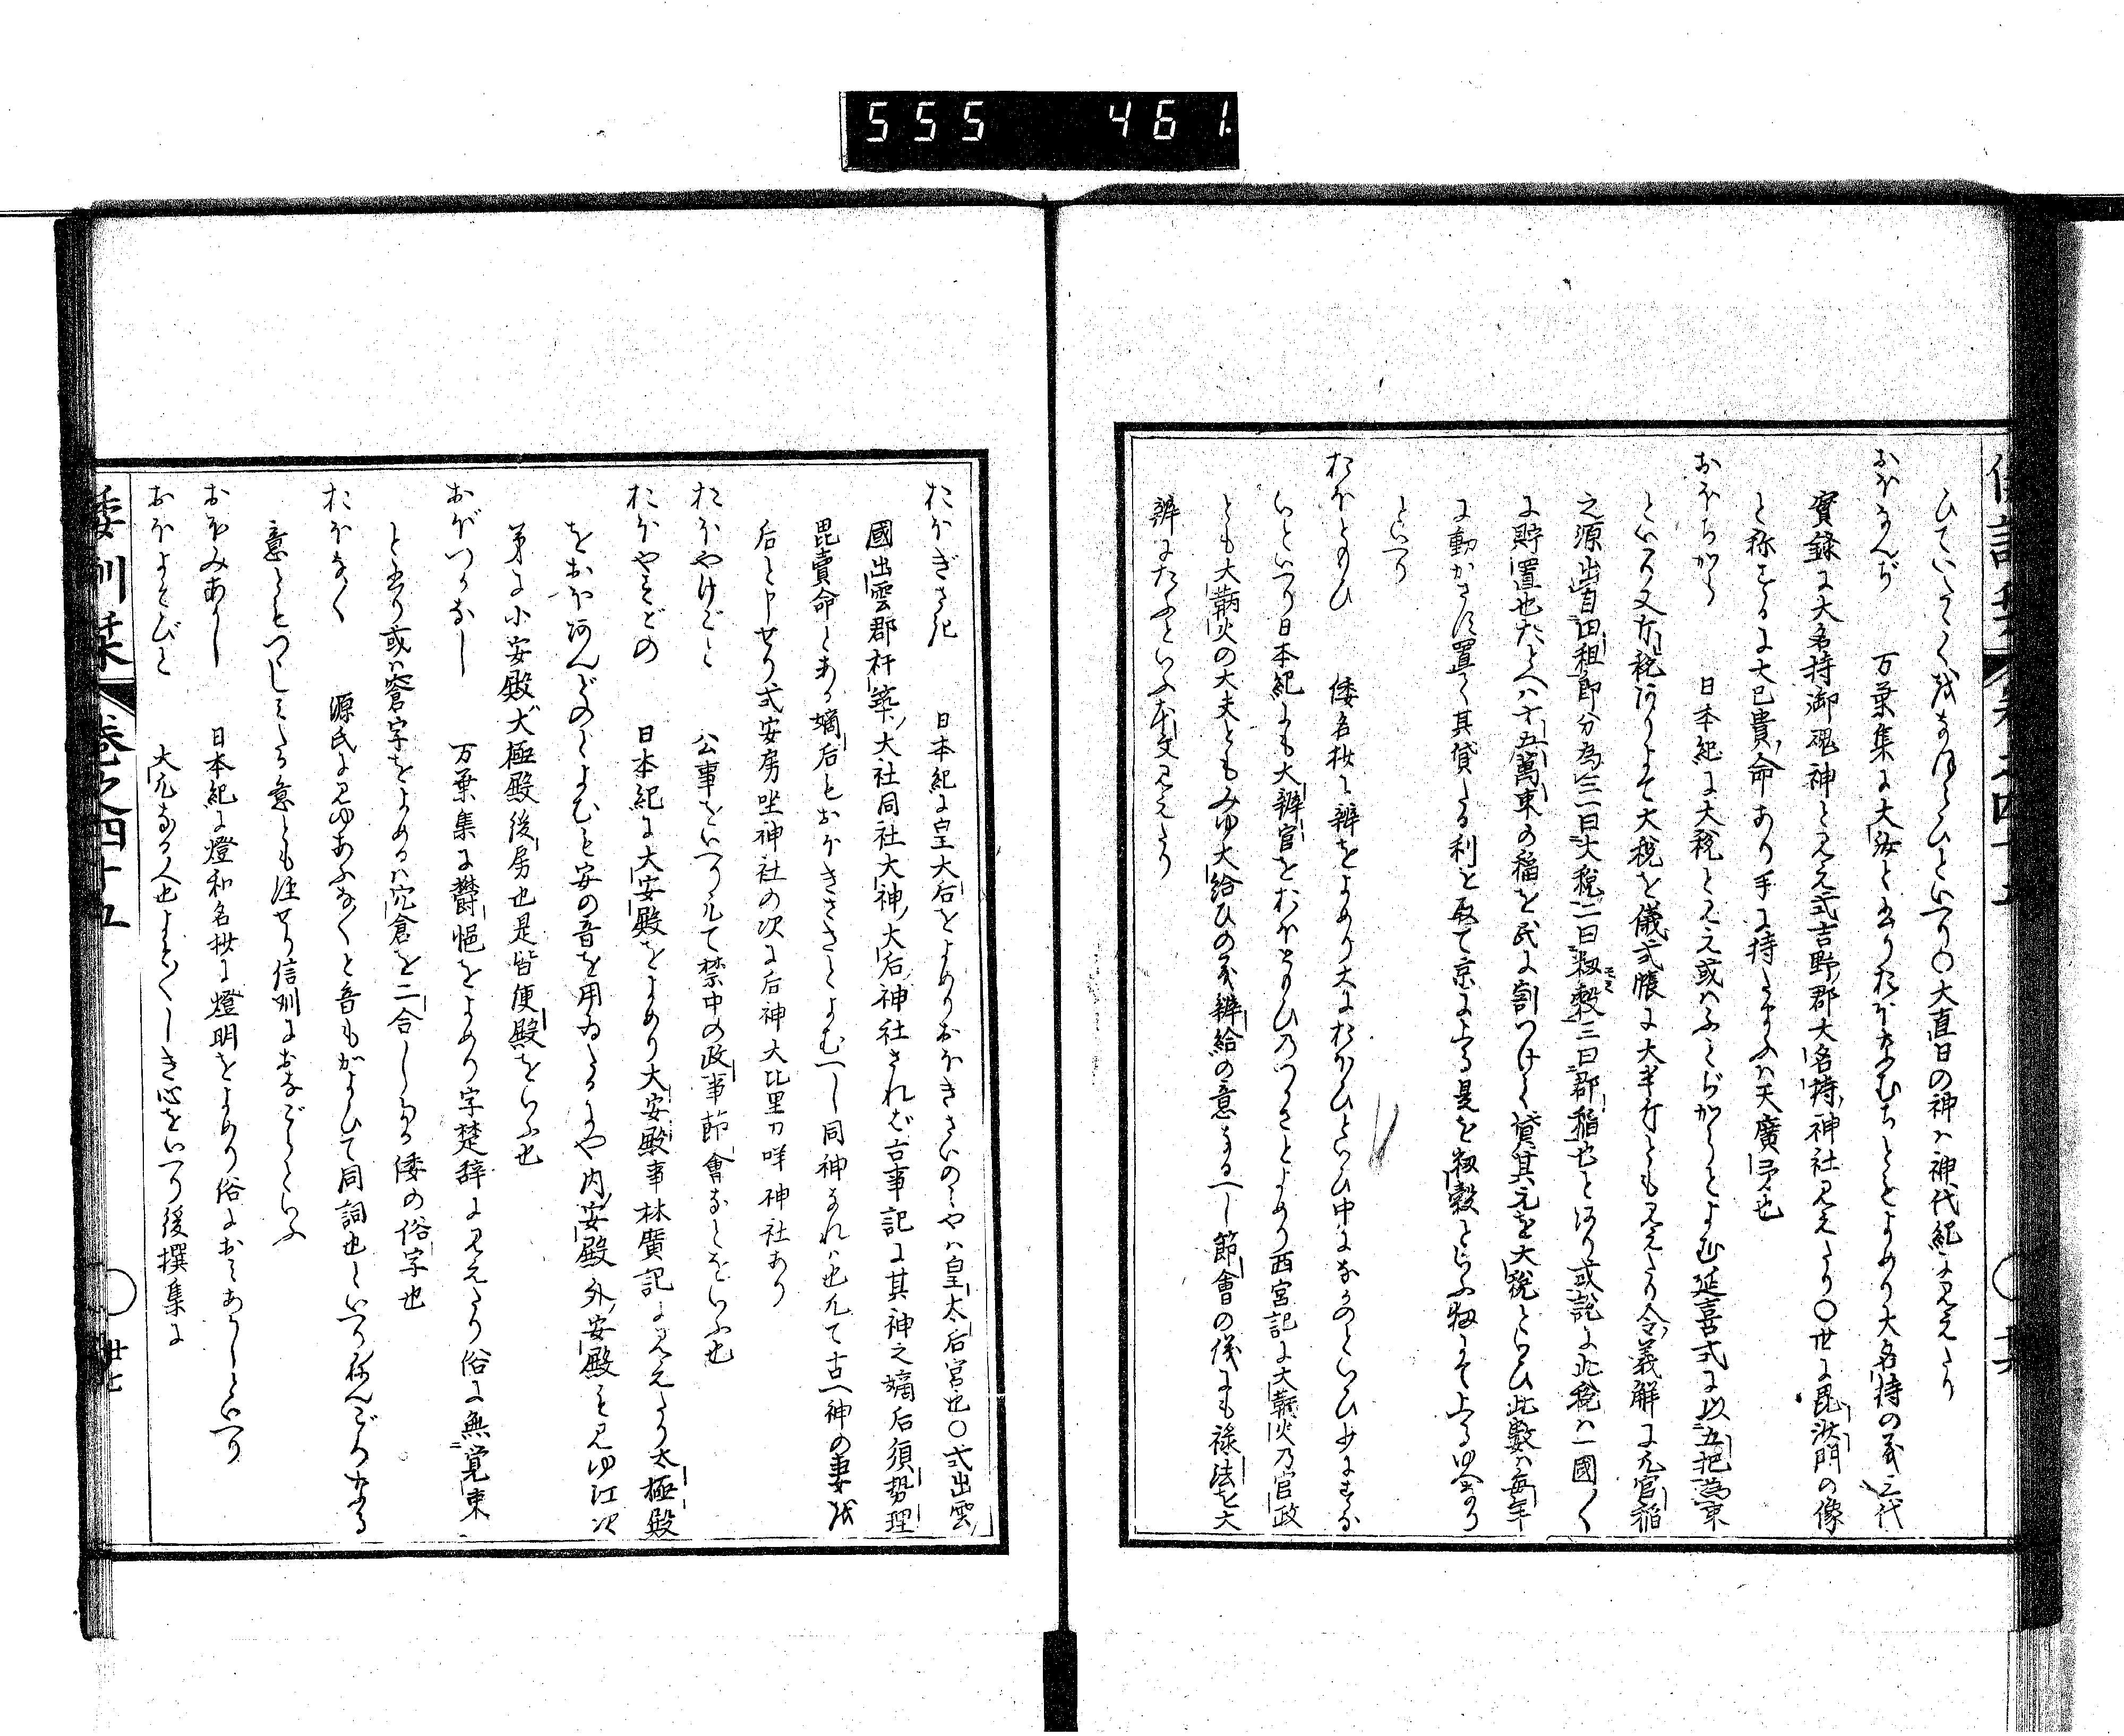 555 461.
ひていさく哉なほらひといへり〇大直日の神ハ神代紀に見えたり
おほなんぢ 万葉集に大汝と書りおほなむちともよめり大名持の義三代
實録に大名持御魂神と見え式吉野郡大名持神社見えたり〇世に毘沙門の像
と称するに大己貴命あり手に持たまふハ天廣矛也
おほぢから 日本紀に大税と見え或ハふとぢからとよむ延喜式に以五把為束
といへり又方税ありよて大税を儀式帳に大半斤とも見えたり令義解に元官稲
之源出自田租即分為三一曰大税二曰籾穀三曰郡稲也とあり或説に此税ハ一國〱
に貯置也たとへハ十五萬束の稲を民に割つけて貸其元を大税といひ此數ハ毎年
に動かさす置て其貸たる利を取て京に上る是を籾穀といふ籾にて上るゆゑなり
といへり
おほとのひ 倭名抄に辨をよめり大におほひといひ中になかのといひ少にすな
いといへり日本紀にも大辨官をおほともひのつかさとよめり西宮記に大鞆火乃官政
とも大鞆火の大夫ともみゆ大給ひの義辨給の意なるへし節會の儀にも禄法を大
辨にたまふといふ本文見えたり
倭訓栞 巻之四十五
おほぎさき 日本紀に皇大后をよめりおほきさいのミやハ皇太后宮也〇式出雲
國出雲郡杵築大社同社大神大后神社されば古事記に其神之嫡后須勢理
毘賣命とある嫡后もおほきさきとよむへし同神なれハ也凡て古へ神の妻哉
后と申せり式安房坐神社の次に后神大比里刀咩神社あり
おほやけごと 公事をいへり凡て禁中の政事節會なとをいふ也
おほやすどの 日本紀に大安殿をよめり大安殿事林廣記に見えたり太極殿
をおほあんどのとよむも安の音を用ゐたるにや内安殿外安殿も見ゆ江次
第に小安殿大極殿後房也是皆便殿をいふ也
おぼつかなし 万葉集に欝悒をよめり字楚辞に見えたり俗に無覚束
と書り或ハ窖字をよめるハ穴倉を二合したる倭の俗字也
おほなく 源氏に見ゆあふなくと音もかよひて同詞也といへりねんごろなる
意ともつしミたる意とも注せり信州におなごくといふ
おほみあかし 日本紀に燈和名抄に燈明をよめり俗におミあかしといへり
おほよそびと 大凡なる人也よそ〱しき心をいへり後撰集に
倭訓栞 巻之四十五 〇 卅七